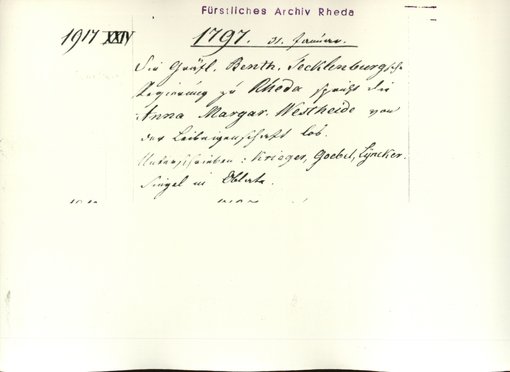 Fürstliches Archiv Rheda
1917 XXIV 1797. 31. Januar.
Die Gräfl. Benth. Tecklenburgsche
Regierung zu Rheda spricht die
Anna Margar. Westheide von
der Leibeigenschaft los.
Unterschrieben: Krieger, Goebel, Lyncker.
Siegel in Oblate.